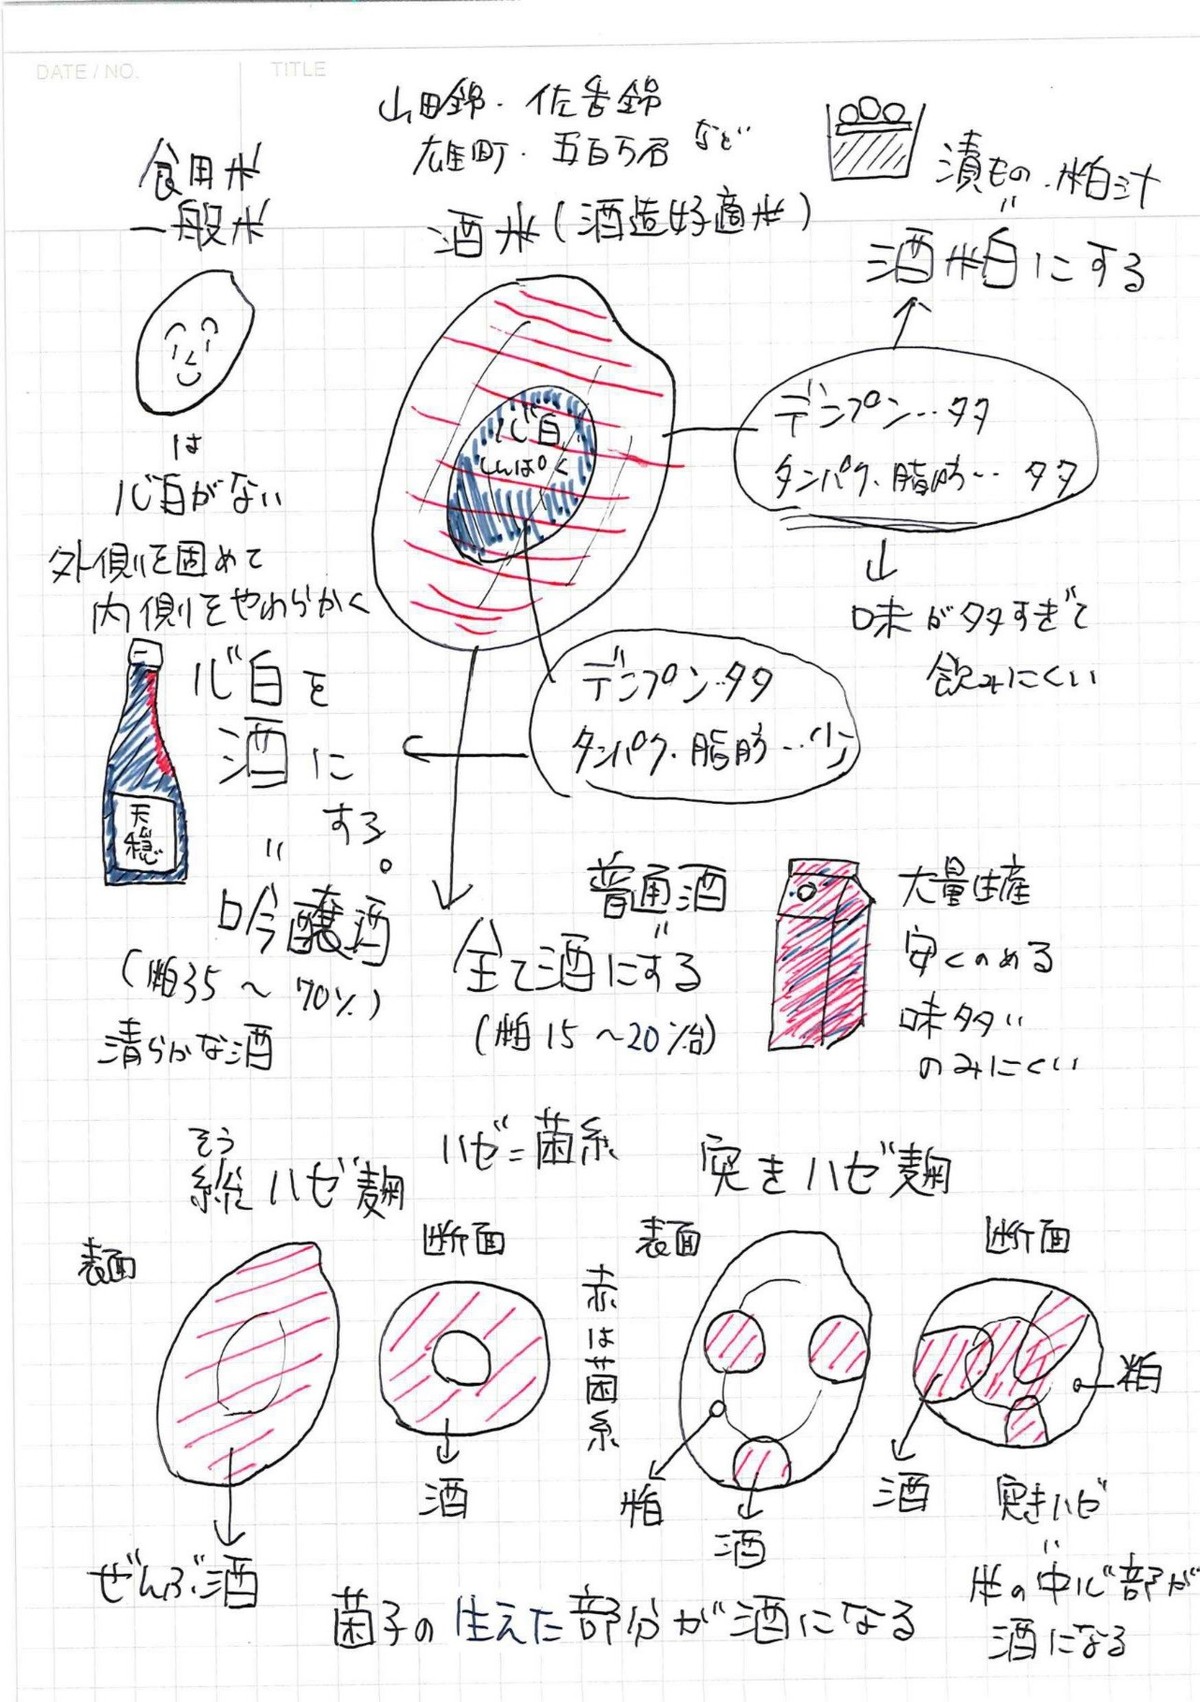 DATE / NO.
TITLE
山田錦・佐香錦
雄町・五百万石 など
食用米
一般米
酒米(酒造好適米)
漬もの・粕汁
〃
酒粕にする
は
心白がない
心白
しんぱく
デンプン‥多タ
タンパク、脂肪‥多タ
外側を固めて
内側をやわらかく
味が多すぎて
飲みにくい
心白を
酒に
する。
天穏
デンプン‥多タ
タンパク、脂肪‥少
〃
吟醸酒
(粕35～70%)
清らかな酒
普通酒
〃
全て酒にする
(粕15～20%)
大量生産
安くのめる
味多い
のみにくい
そう
総ハゼ麹
ハゼ=菌糸
突きハゼ麹
表面
断面
赤は菌糸
表面
断面
粕
酒
ぜんぶ酒
粕
酒
酒
突きハゼ
〃
米の中心部が
酒になる
菌子の生えた部分が酒になる